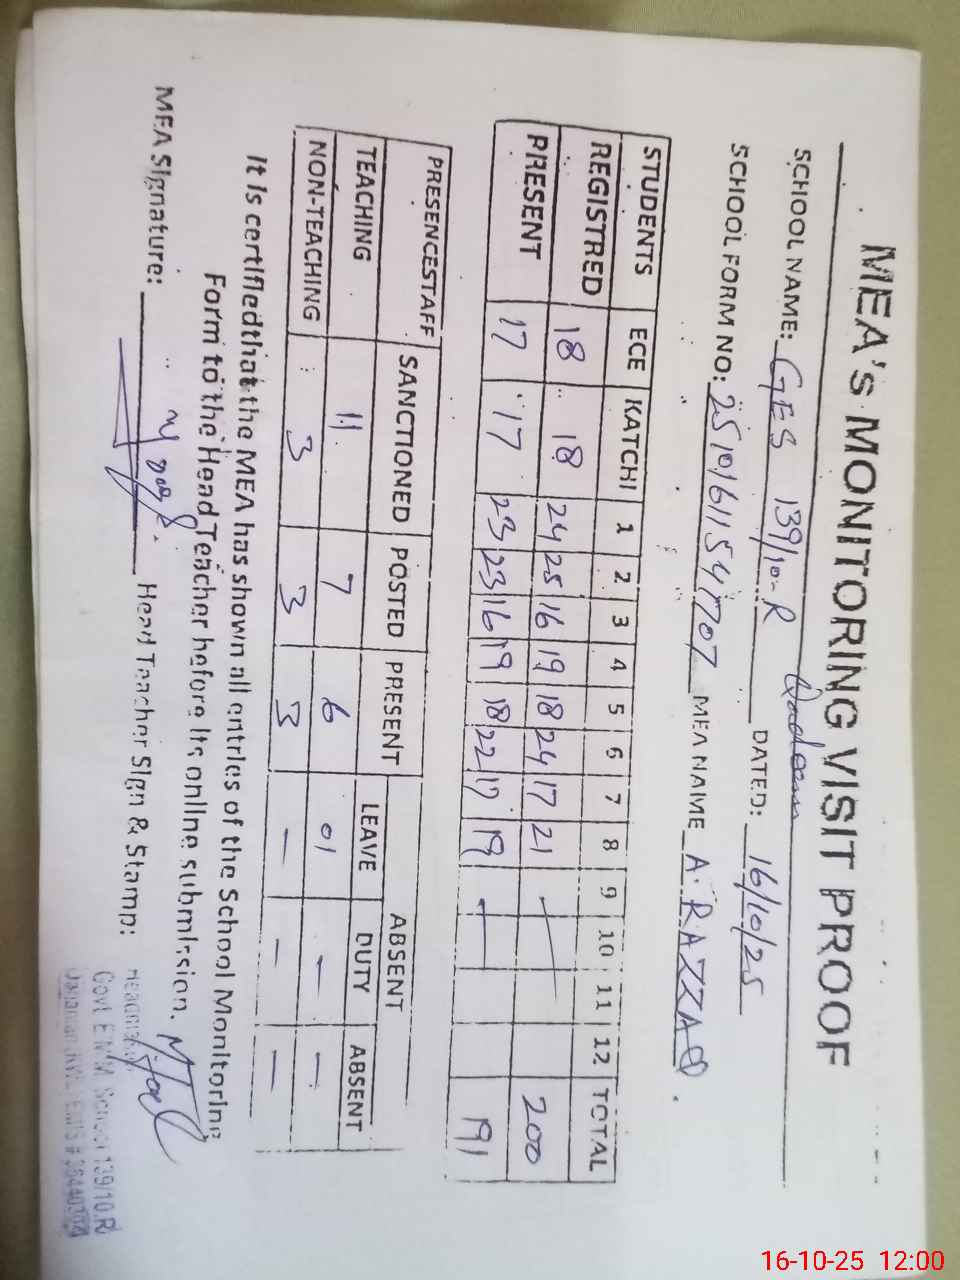 MEA'S MONITORING VISIT PROOF
SCHOOL NAME: GES 139/10-R DATED: 16/10/25
SCHOOL FORM NO: MEA NAME A. RAZZAQ
STUDENTS ECE KATCHI 1 2 3 4 5 6 7 8 9 10 11 12 TOTAL
REGISTRED 18 18 24 25 16 19 18 24 17 21 — 200
PRESENT 17 17 23 23 16 19 18 22 17 19 — 191
PRESENCESTAFF SANCTIONED POSTED PRESENT ABSENT
LEAVE DUTY ABSENT
TEACHING 11 7 6 01 — —
NON-TEACHING 3 3 3 — — —
It is certifiedthat the MEA has shown all entries of the School Monitoring
Form to the Head Teacher before its online submission.
MEA Signature: Head Teacher Sign & Stamp:
Govt E/M School 139/10.R
16-10-25 12:00